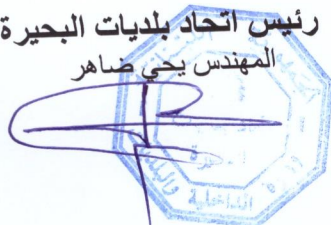 رئيس اتحاد بلديات البحيرة
المهندس يحي ضاهر
الداخلية